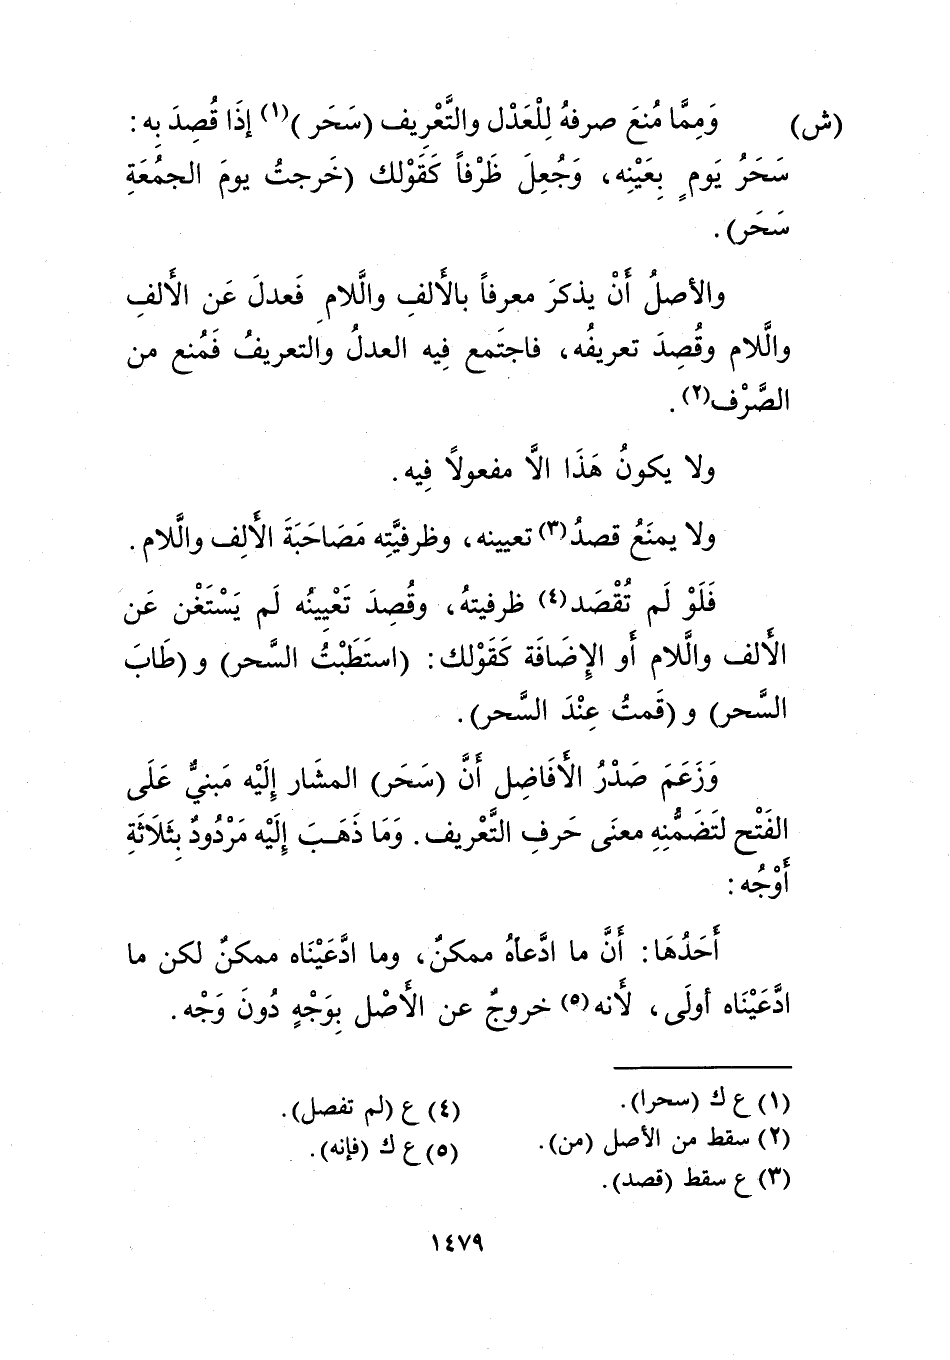 (ش) وَمِمَّا مُنعَ صرفهُ لِلْعَدْل والتَّعْرِيف (سَحَر)(١) إِذَا قُصِدَ بِه :
سَحَرُ يَوم بِعَيْنِه، وَجُعِلَ ظَرْفاً كَقَوْلك (خَرجتُ يومَ الجمُعَةِ
سَحَر).
والأصلُ أَنْ يذكرَ معرفاً بالأَلفِ واللَّامِ فَعدلَ عَن الأَلفِ
واللَّام وقُصِدَ تعريفُه، فاجتَمع فِيه العدلُ والتعريفُ فَمُنع من
الصَّرْف(٢).
ولا يكونُ هَذَا الاَّ مفعولاً فِيه.
ولا يمنَعُ قصدُ(٣) تعيينه، وظرفيَّتِه مَصَاحَبَةَ الأَلف واللَّام.
فَلَوْ لَم تُقْصَد(٤) ظرفيتهُ، وقُصِدَ تَعْيِينُه لَم يَسْتَغْن عَن
الأَلف واللَّام أَو الإِضَافَة كَقَوْلك : (استَطَبْتُ السَّحر) و (طَابَ
السَّحر) و (قَمتُ عِنْدَ السَّحر).
وَزَعَمَ صَدْرُ الأَفَاضِل أَنَّ (سَحَر) المشَار إِلَيْه مَبنيٌّ عَلَى
الفَتْح لتَضَمُّنِهِ معنَى حَرفِ التَّعْريف. وَمَا ذَهَبَ إِلَيْه مَرْدُودٌ بِثَلَاثَةِ
أَوْجُه :
أَحَدُهَا : أَنَّ ما ادَّعاَهُ ممكنٌ، وما ادَّعَيْنَاه ممكنٌ لكن ما
ادَّعَيْنَاه أولَى، لأَنه(٥) خروجٌ عن الأَصْل بِوَجْهٍ دُونَ وَجْه.
(١) ع ك (سحرا).
(٢) سقط من الأصل (من).
(٣) ع سقط (قصد).
(٤) ع (لم تفصل).
(٥) ع ك (فإنه).
١٤٧٩